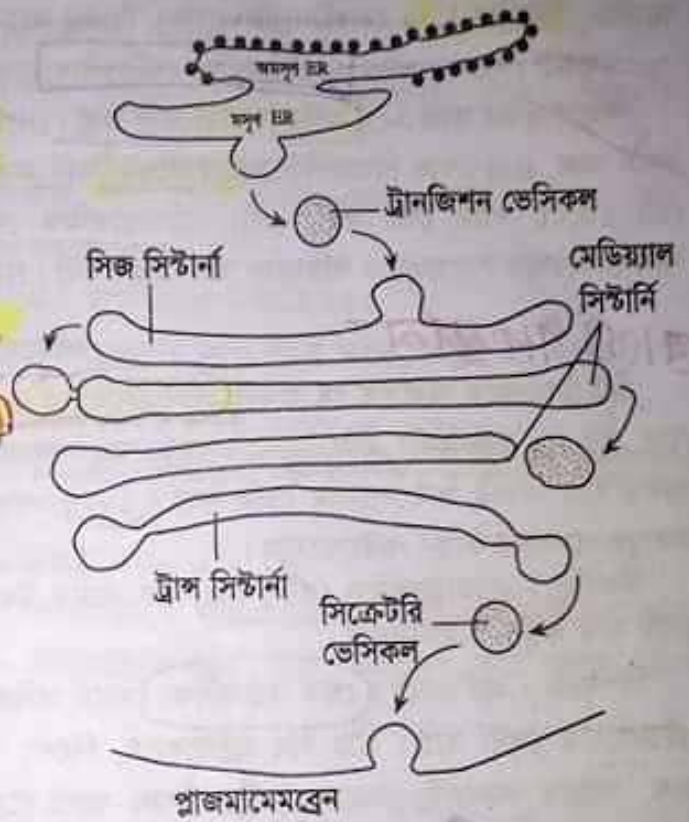 অমসৃণ ER
মসৃণ ER
ট্রানজিশন ভেসিকল
সিজ সিস্টার্না
মেডিয়্যাল
সিস্টার্নি
ট্রান্স সিস্টার্না
সিক্রেটরি
ভেসিকল
প্লাজমামেমব্রেন